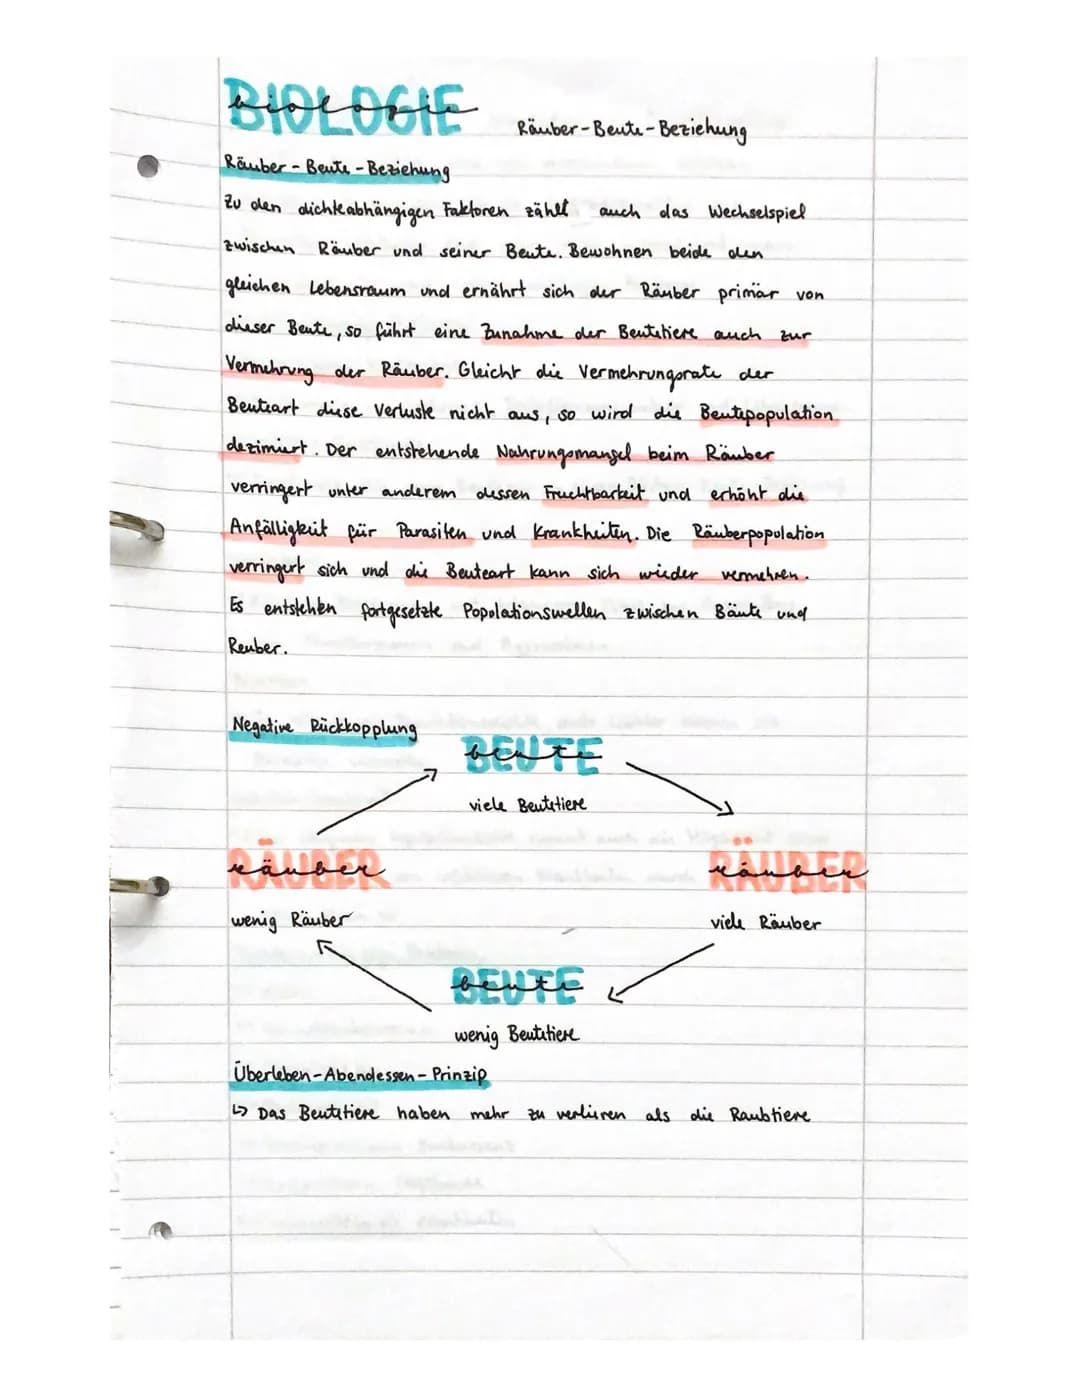 BIOLOGIE
biologie
Räuber-Beute-Beziehung
Räuber-Beute-Beziehung
Zu den dichteabhängigen Faktoren zählt auch das Wechselspiel
zwischen Räuber und seiner Beute. Bewohnen beide den
gleichen Lebensraum und ernährt sich der Räuber primär von
dieser Beute, so führt eine Zunahme der Beutetiere auch zur
Vermehrung der Räuber. Gleicht die Vermehrungsrate der
Beuteart diese Verluste nicht aus, so wird die Beutepopulation
dezimiert. Der entstehende Nahrungsmangel beim Räuber
verringert unter anderem dessen Fruchtbarkeit und erhöht die
Anfälligkeit für Parasiten und Krankheiten. Die Räuberpopulation
verringert sich und die Beuteart kann sich wieder vermehren.
Es entstehen fortgesetzte Popolationswellen zwischen Bäute und
Reuber.
Negative Rückkopplung
BEUTE
beute
viele Beutetiere
RÄUBER
räuber
RÄUBER
räuber
wenig Räuber
viele Räuber
BEUTE
beute
wenig Beutetiere
Überleben-Abendessen-Prinzip
↳ Das Beutetiere haben mehr zu verlieren als die Raubtiere